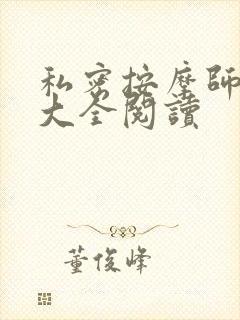 私密按摩師
大全閱讀
董俊峰